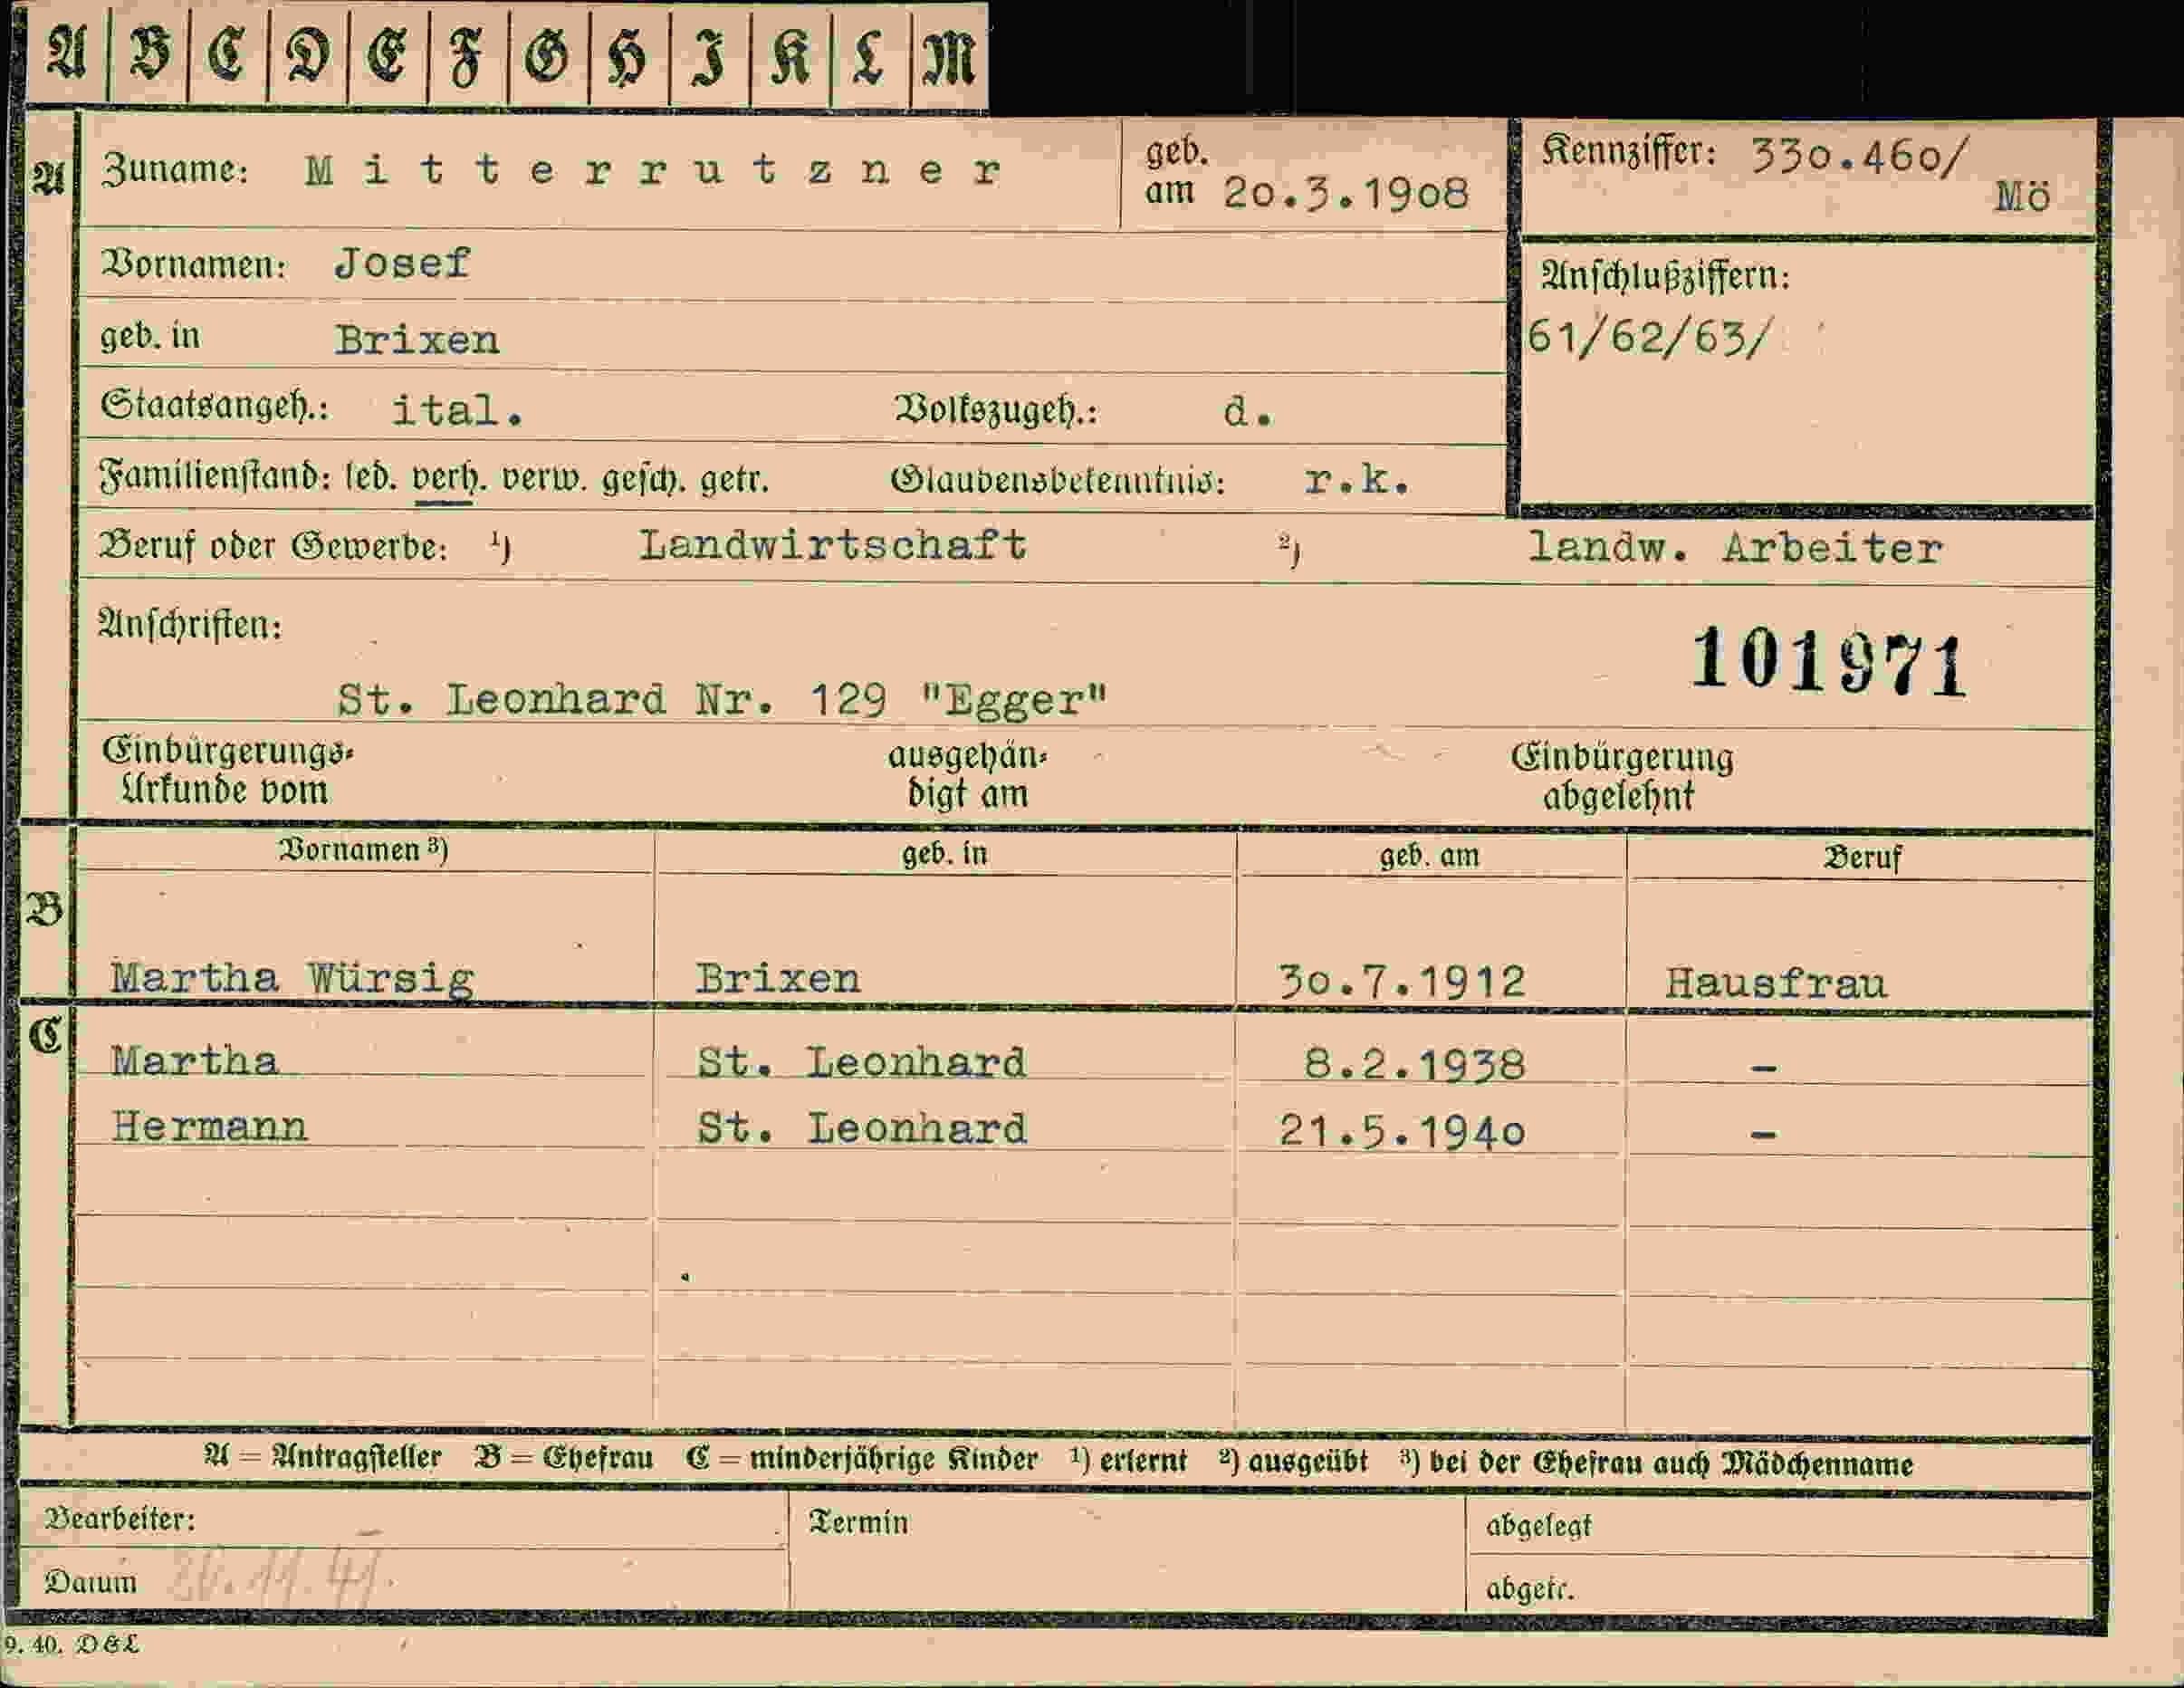 A B C D E F G H I K L M
A Zuname: Mitterrutzner geb. am 20.3.1908 Kennziffer: 330.460/ Mö
Vornamen: Josef Anschlußziffern:
geb. in Brixen 61/62/63/
Staatsangeh.: ital. Volkszugeh.: d.
Familienstand: led. verh. verw. gesch. getr. Glaubensbekenntnis: r.k.
Beruf oder Gewerbe: 1) Landwirtschaft 2) landw. Arbeiter
Anschriften: 101971
St. Leonhard Nr. 129 "Egger"
Einbürgerungs- ausgehän- Einbürgerung
Urkunde vom digt am abgelehnt
Vornamen 3) geb. in geb. am Beruf
B
Martha Würsig Brixen 30.7.1912 Hausfrau
C
Martha St. Leonhard 8.2.1938 -
Hermann St. Leonhard 21.5.1940 -
A = Antragsteller B = Ehefrau C = minderjährige Kinder 1) erlernt 2) ausgeübt 3) bei der Ehefrau auch Mädchenname
Bearbeiter: Termin abgelegt
Datum abgetr.
9. 40. D&L